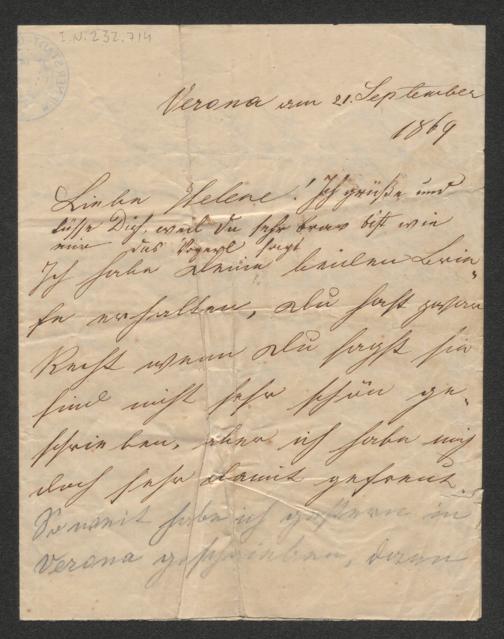 I.N. 232.714
Verona am 21. September
1869
Liebe Helene! Ich grüße und
küsse Dich, weil du sehr brav bist wie
mir das Vogerl sagt
Ich habe Deine beiden Brie-
fe erhalten, Du hast zwar
Recht wenn Du sagst sie
sind nicht sehr schön ge-
schrieben, aber ich habe mich
doch sehr damit gefreut.
So weit habe ich gestern in
Verona geschrieben, dann